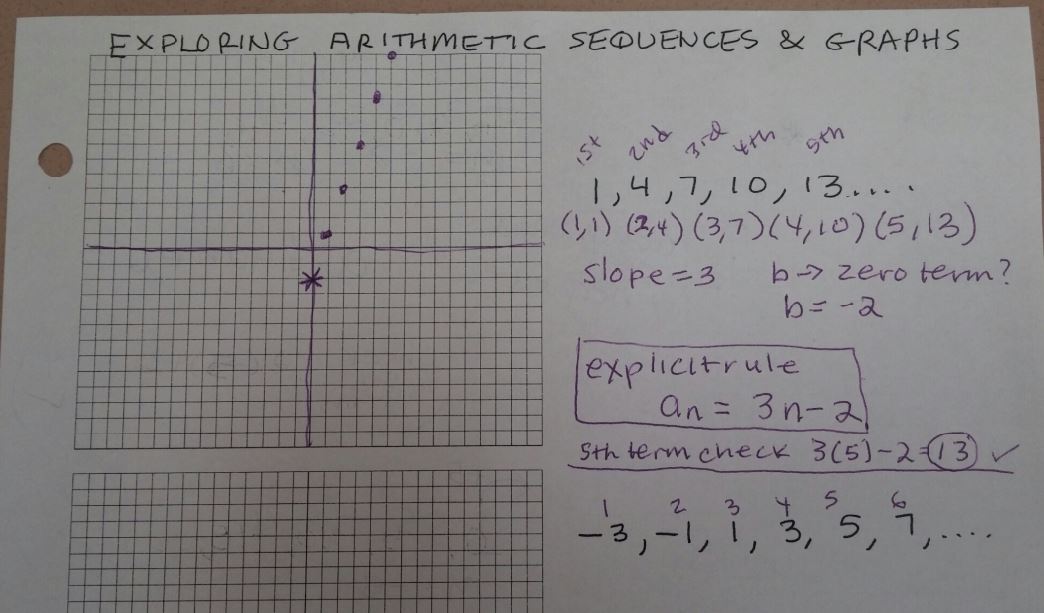 EXPLORING ARITHMETIC SEQUENCES & GRAPHS
1st 2nd 3rd 4th 5th
1, 4, 7, 10, 13....
(1,1) (2,4) (3,7) (4,10) (5,13)
slope = 3 b → zero term?
b = -2
explicit rule
an = 3n-2
5th term check 3(5)-2=13 ✓
1 2 3 4 5 6
-3, -1, 1, 3, 5, 7, ....